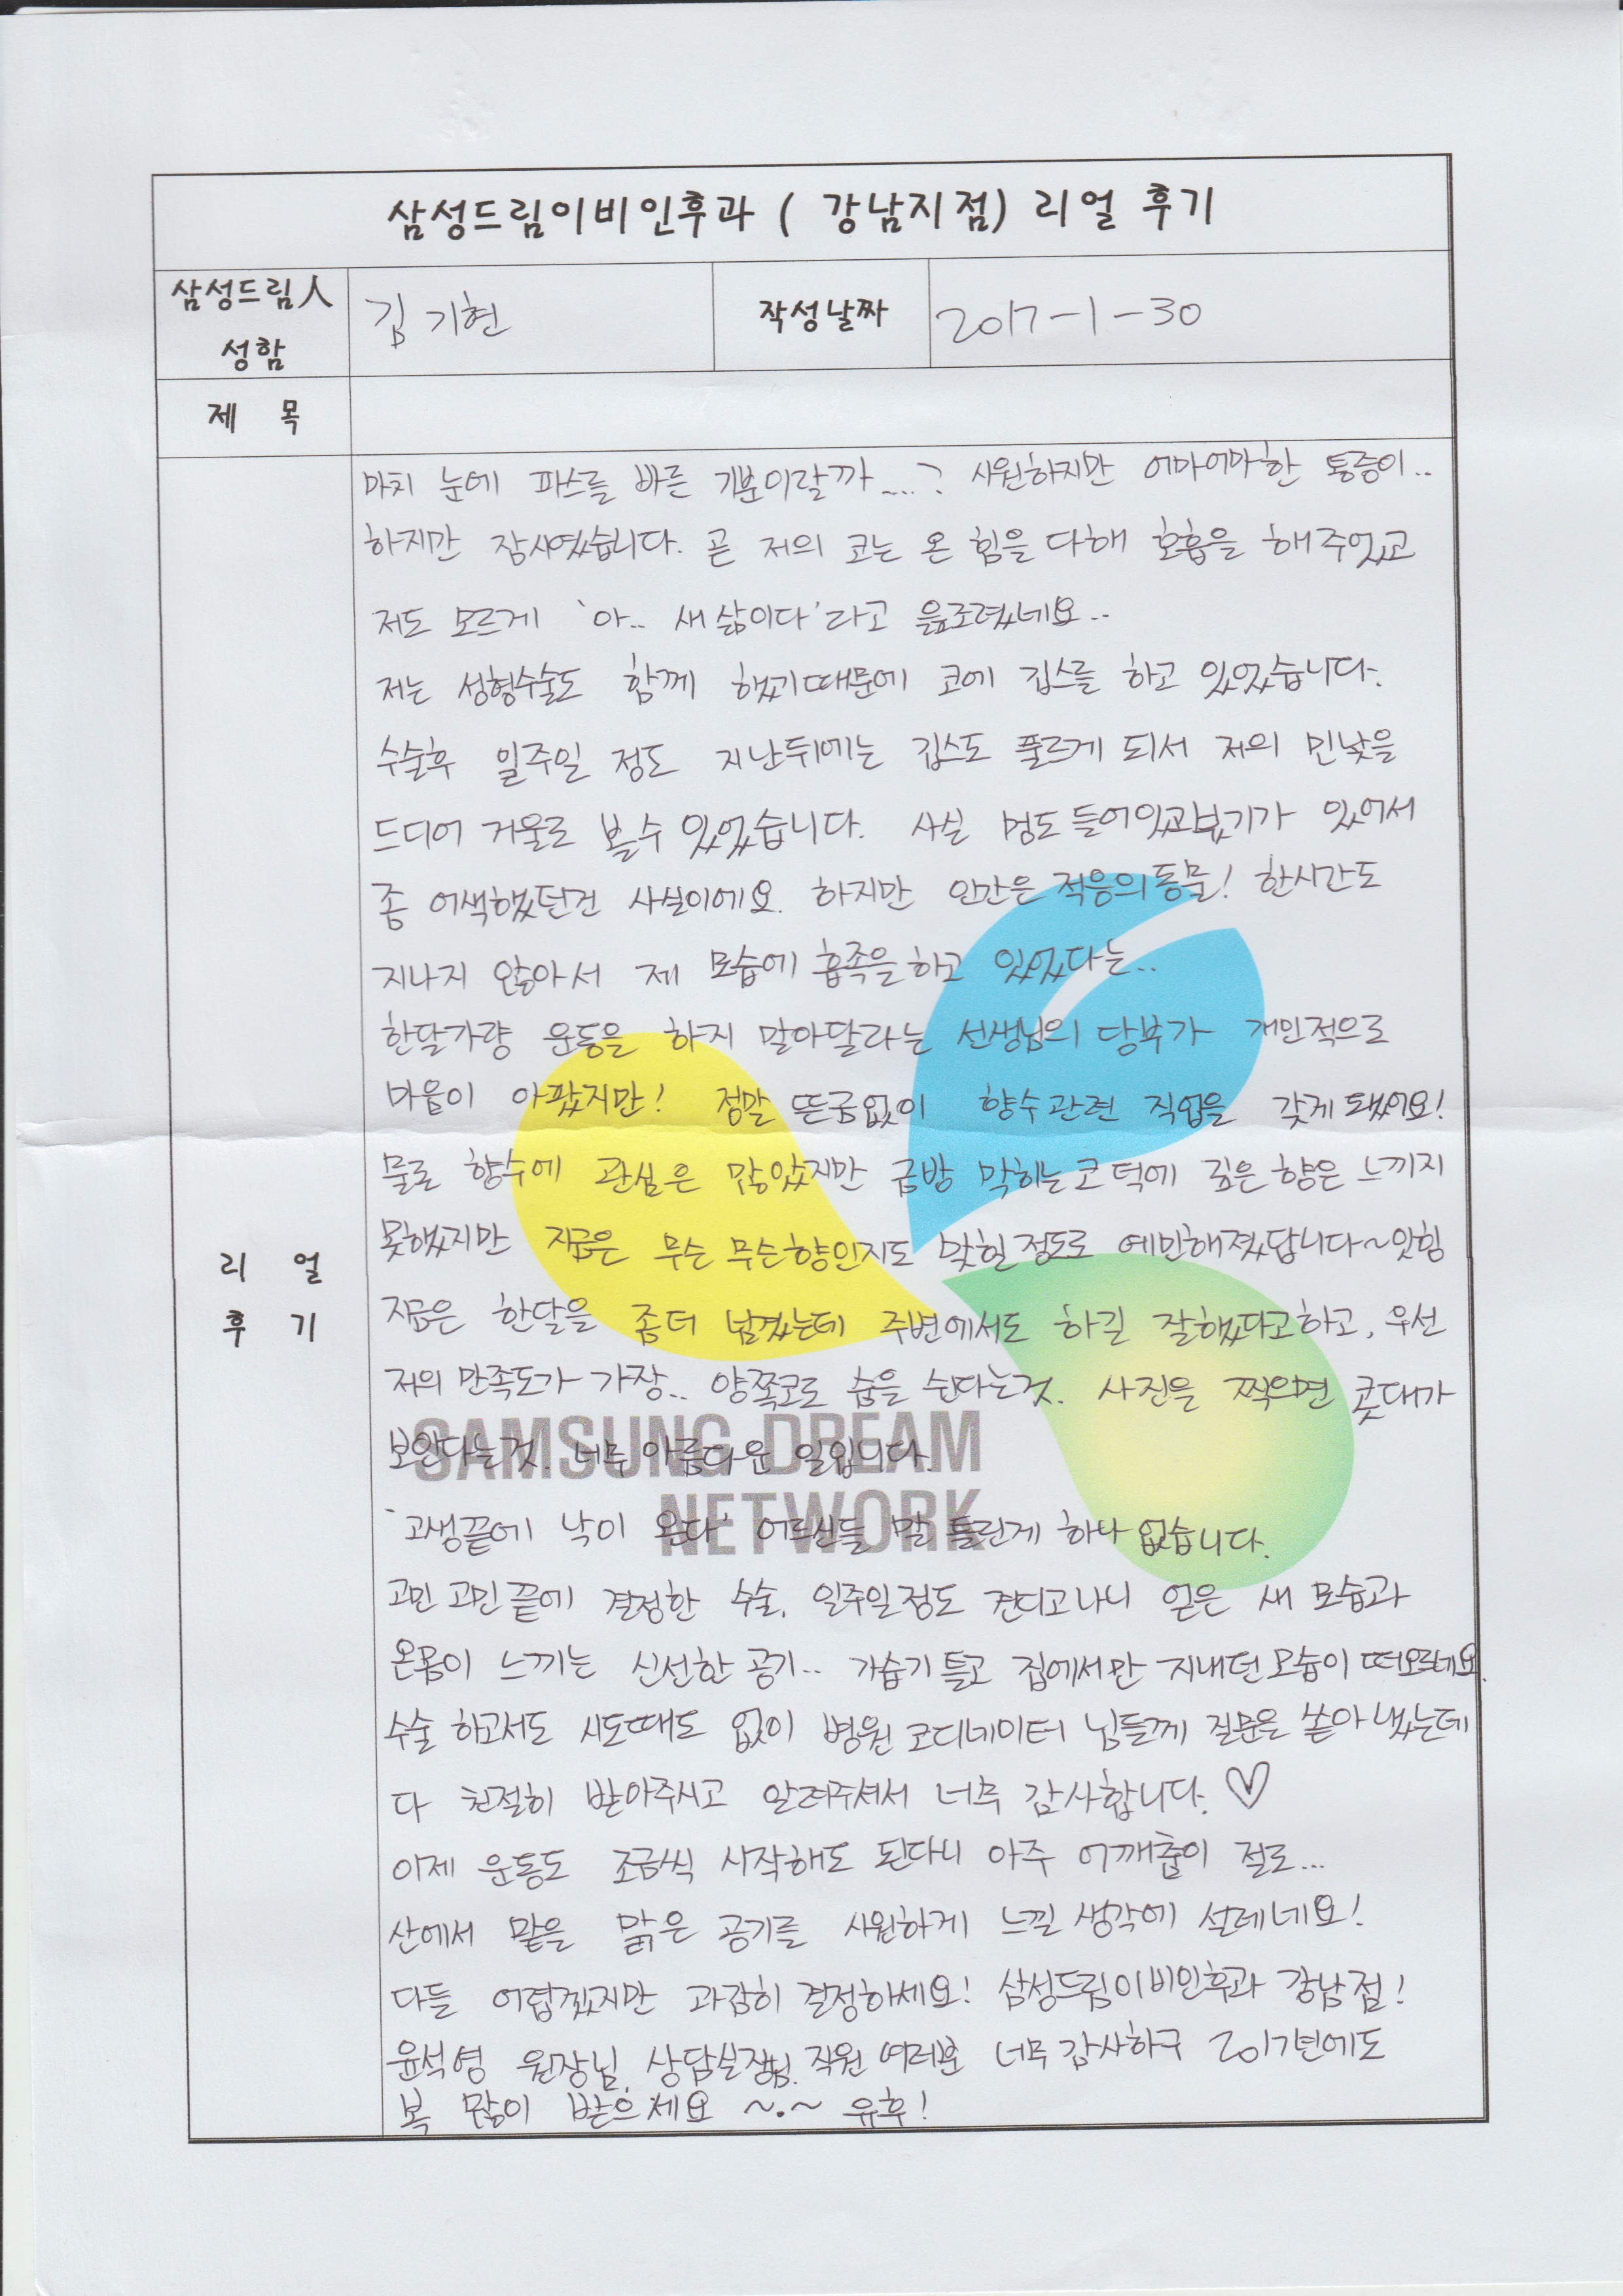 삼성드림이비인후과 ( 강남지점) 리얼 후기
삼성드림人 성함
김기현
작성날짜
2017-1-30
제 목
리 얼
후 기
마치 눈에 파스를 바른 기분이랄까....? 시원하지만 어마어마한 통증이..
하지만 잠시였습니다. 곧 저의 코는 온 힘을 다해 호흡을 해주었고
저도 모르게 '아.. 새삶이다'라고 읊조렸네요..
저는 성형수술도 함께 했기때문에 코에 깁스를 하고 있었습니다.
수술후 일주일 정도 지난뒤에는 깁스도 풀르게 되서 저의 민낯을
드디어 거울로 볼수 있었습니다. 사실 멍도 들어있고붓기가 있어서
좀 어색했던건 사실이에요. 하지만 인간은 적응의동물! 한시간도
지나지 않아서 제 모습에 흡족을하고 있었다는..
한달가량 운동을 하지 말아달라는 선생님의 당부가 개인적으로
마음이 아팠지만! 정말 뜬금없이 향수관련 직업을 갖게 됐어요!
물로 향수에 관심은 많았지만 금방 막히는코 덕에 깊은향은 느끼지
못했지만 지금은 무슨 무슨향인지도 맞힐정도로 예민해졌답니다~잇힝
지금은 한달을 좀더 넘겼는데 주변에서도 하길 잘했다고하고, 우선
저의 만족도가 가장.. 양쪽코로 숨을 쉰다는것. 사진을 찍으면 콧대가
보인다는것. 너무 아름다운 일입니다.
SAMSUNG DREAM
NETWORK
'고생끝에 낙이 온다' 어르신들 말 틀린게 하나 없습니다.
고민 고민끝에 결정한 수술, 일주일정도 견디고나니 얻은 새 모습과
온몸이 느끼는 신선한 공기.. 가습기 틀고 집에서만 지내던모습이 떠오르네요.
수술 하고서도 시도때도 없이 병원 코디네이터 님들께 질문을 쏟아 냈는데
다 친절히 받아주시고 알려주셔서 너무 감사합니다. ♡
이제 운동도 조금씩 시작해도 된다니 아주 어깨춤이 절로...
산에서 맡을 맑은 공기를 시원하게 느낄 생각에 설레네요!
다들 어렵겠지만 과감히 결정하세요! 삼성드림이비인후과 강남점!
윤석영 원장님, 상담실장님, 직원 여러분 너무 감사하구 2017년에도
복 많이 받으세요 ~.~ 유후!